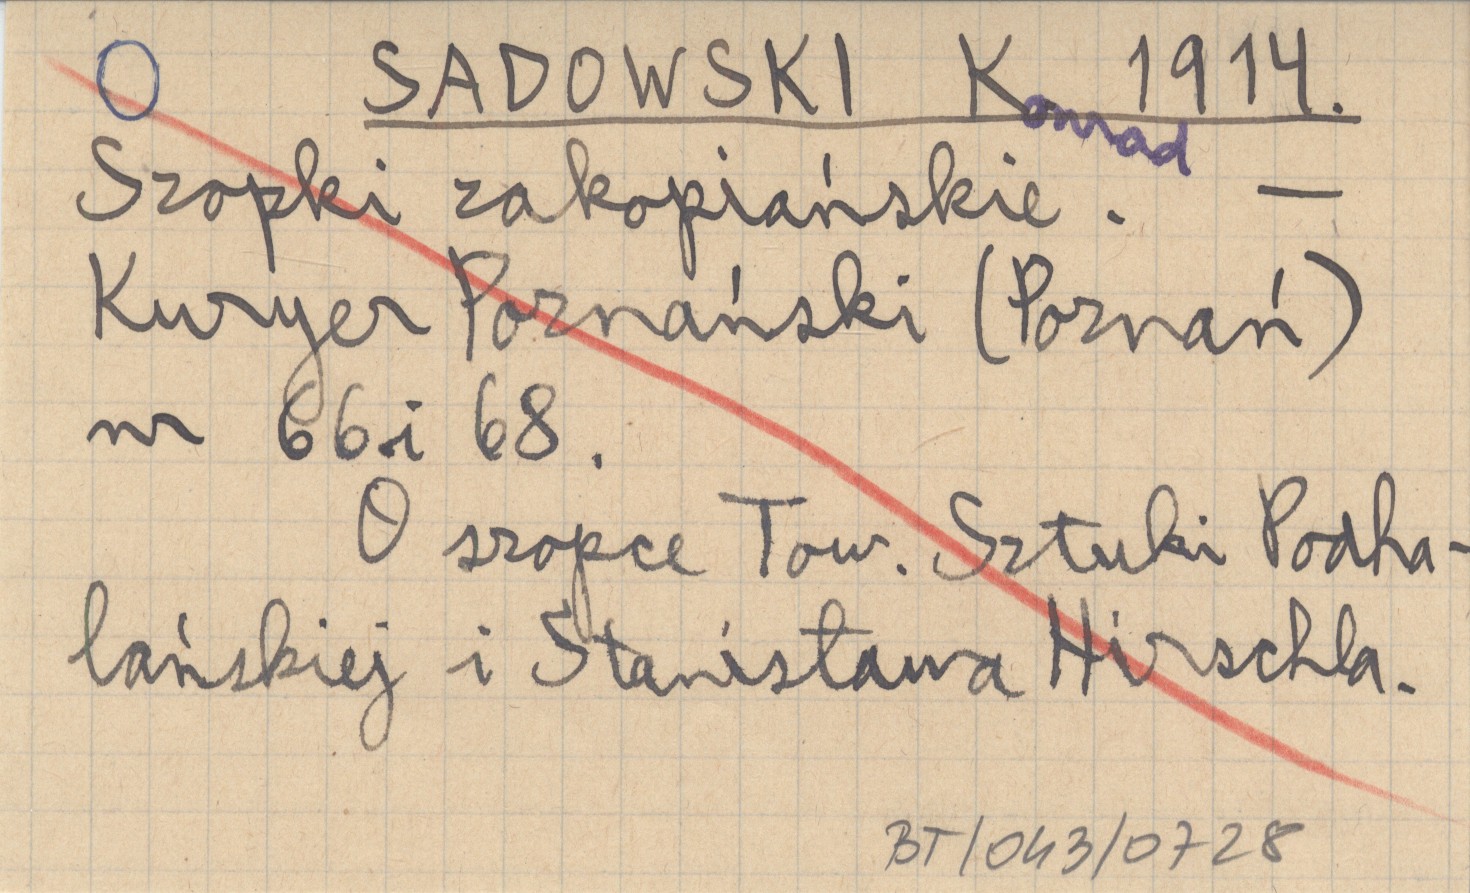 O SADOWSKI Konrad 1914.
Szopki zakopiańskie. —
Kuryer Poznański (Poznań)
nr 66 i 68.
O szopce Tow. Sztuki Podha-
lańskiej i Stanisława Hirschla.
BT/043/0728